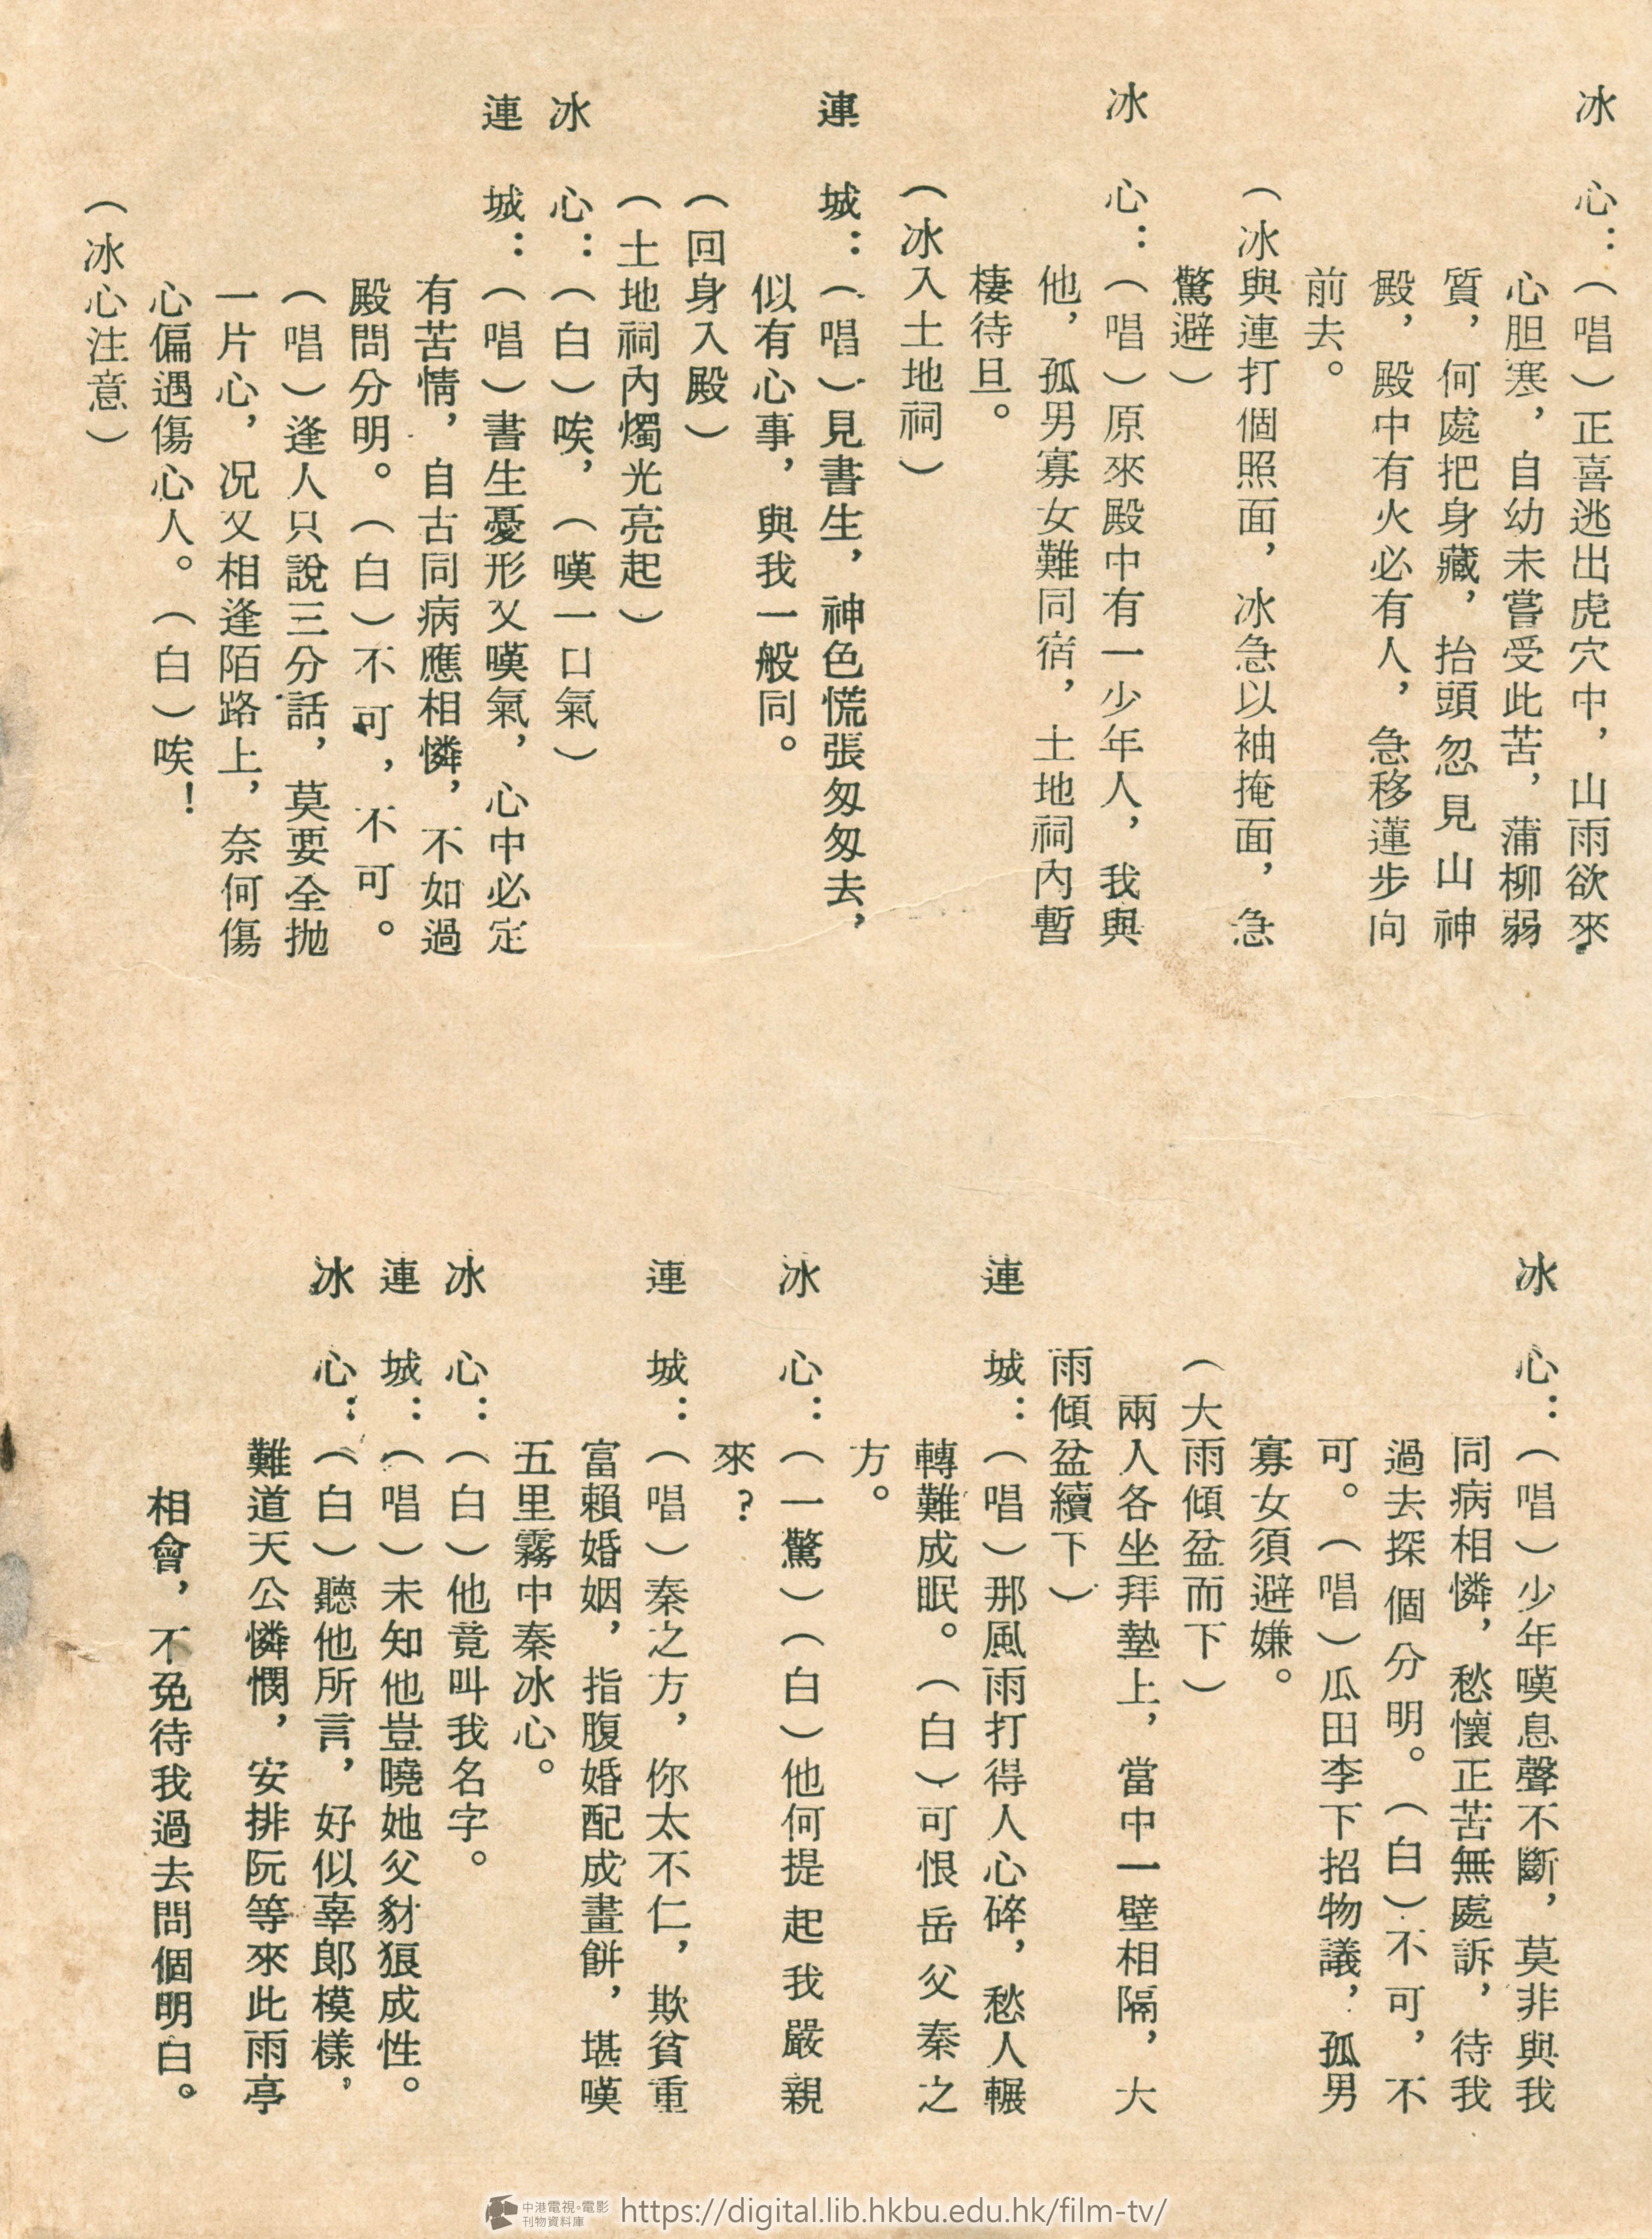 冰　心：（唱）正喜逃出虎穴中，山雨欲來
心胆寒，自幼未嘗受此苦，蒲柳弱
質，何處把身藏，抬頭忽見山神
殿，殿中有火必有人，急移蓮步向
前去。
（冰與連打個照面，冰急以袖掩面，急
驚避）
冰　心：（唱）原來殿中有一少年人，我與
他，孤男寡女難同宿，土地祠內暫
棲待旦。
（冰入土地祠）
連　城：（唱）見書生，神色慌張匆匆去，
似有心事，與我一般同。
（回身入殿）
（土地祠內燭光亮起）
冰　心：（白）唉，（嘆一口氣）
連　城：（唱）書生憂形又嘆氣，心中必定
有苦情，自古同病應相憐，不如過
殿問分明。（白）不可，不可。
（唱）逢人只說三分話，莫要全拋
一片心，况又相逢陌路上，奈何傷
心偏遇傷心人。（白）唉！
（冰心注意）
冰　心：（唱）少年嘆息聲不斷，莫非與我
同病相憐，愁懷正苦無處訴，待我
過去探個分明。（白）不可，不
可。（唱）瓜田李下招物議，孤男
寡女須避嫌。
（大雨傾盆而下）
兩人各坐拜墊上，當中一壁相隔，大
雨傾盆續下）
連　城：（唱）那風雨打得人心碎，愁人輾
轉難成眠。（白）可恨岳父秦之
方。
冰　心：（一驚）（白）他何提起我嚴親
來？
連　城：（唱）秦之方，你太不仁，欺貧重
富賴婚姻，指腹婚配成畫餅，堪嘆
五里霧中秦冰心。
冰　心：（白）他竟叫我名字。
連　城：（唱）未知他豈曉她父豺狼成性。
冰　心：（白）聽他所言，好似辜郎模樣，
難道天公憐憫，安排阮等來此雨亭
相會，不免待我過去問個明白。
中港電視·電影
刊物資料庫
https://digital.lib.hkbu.edu.hk/film-tv/